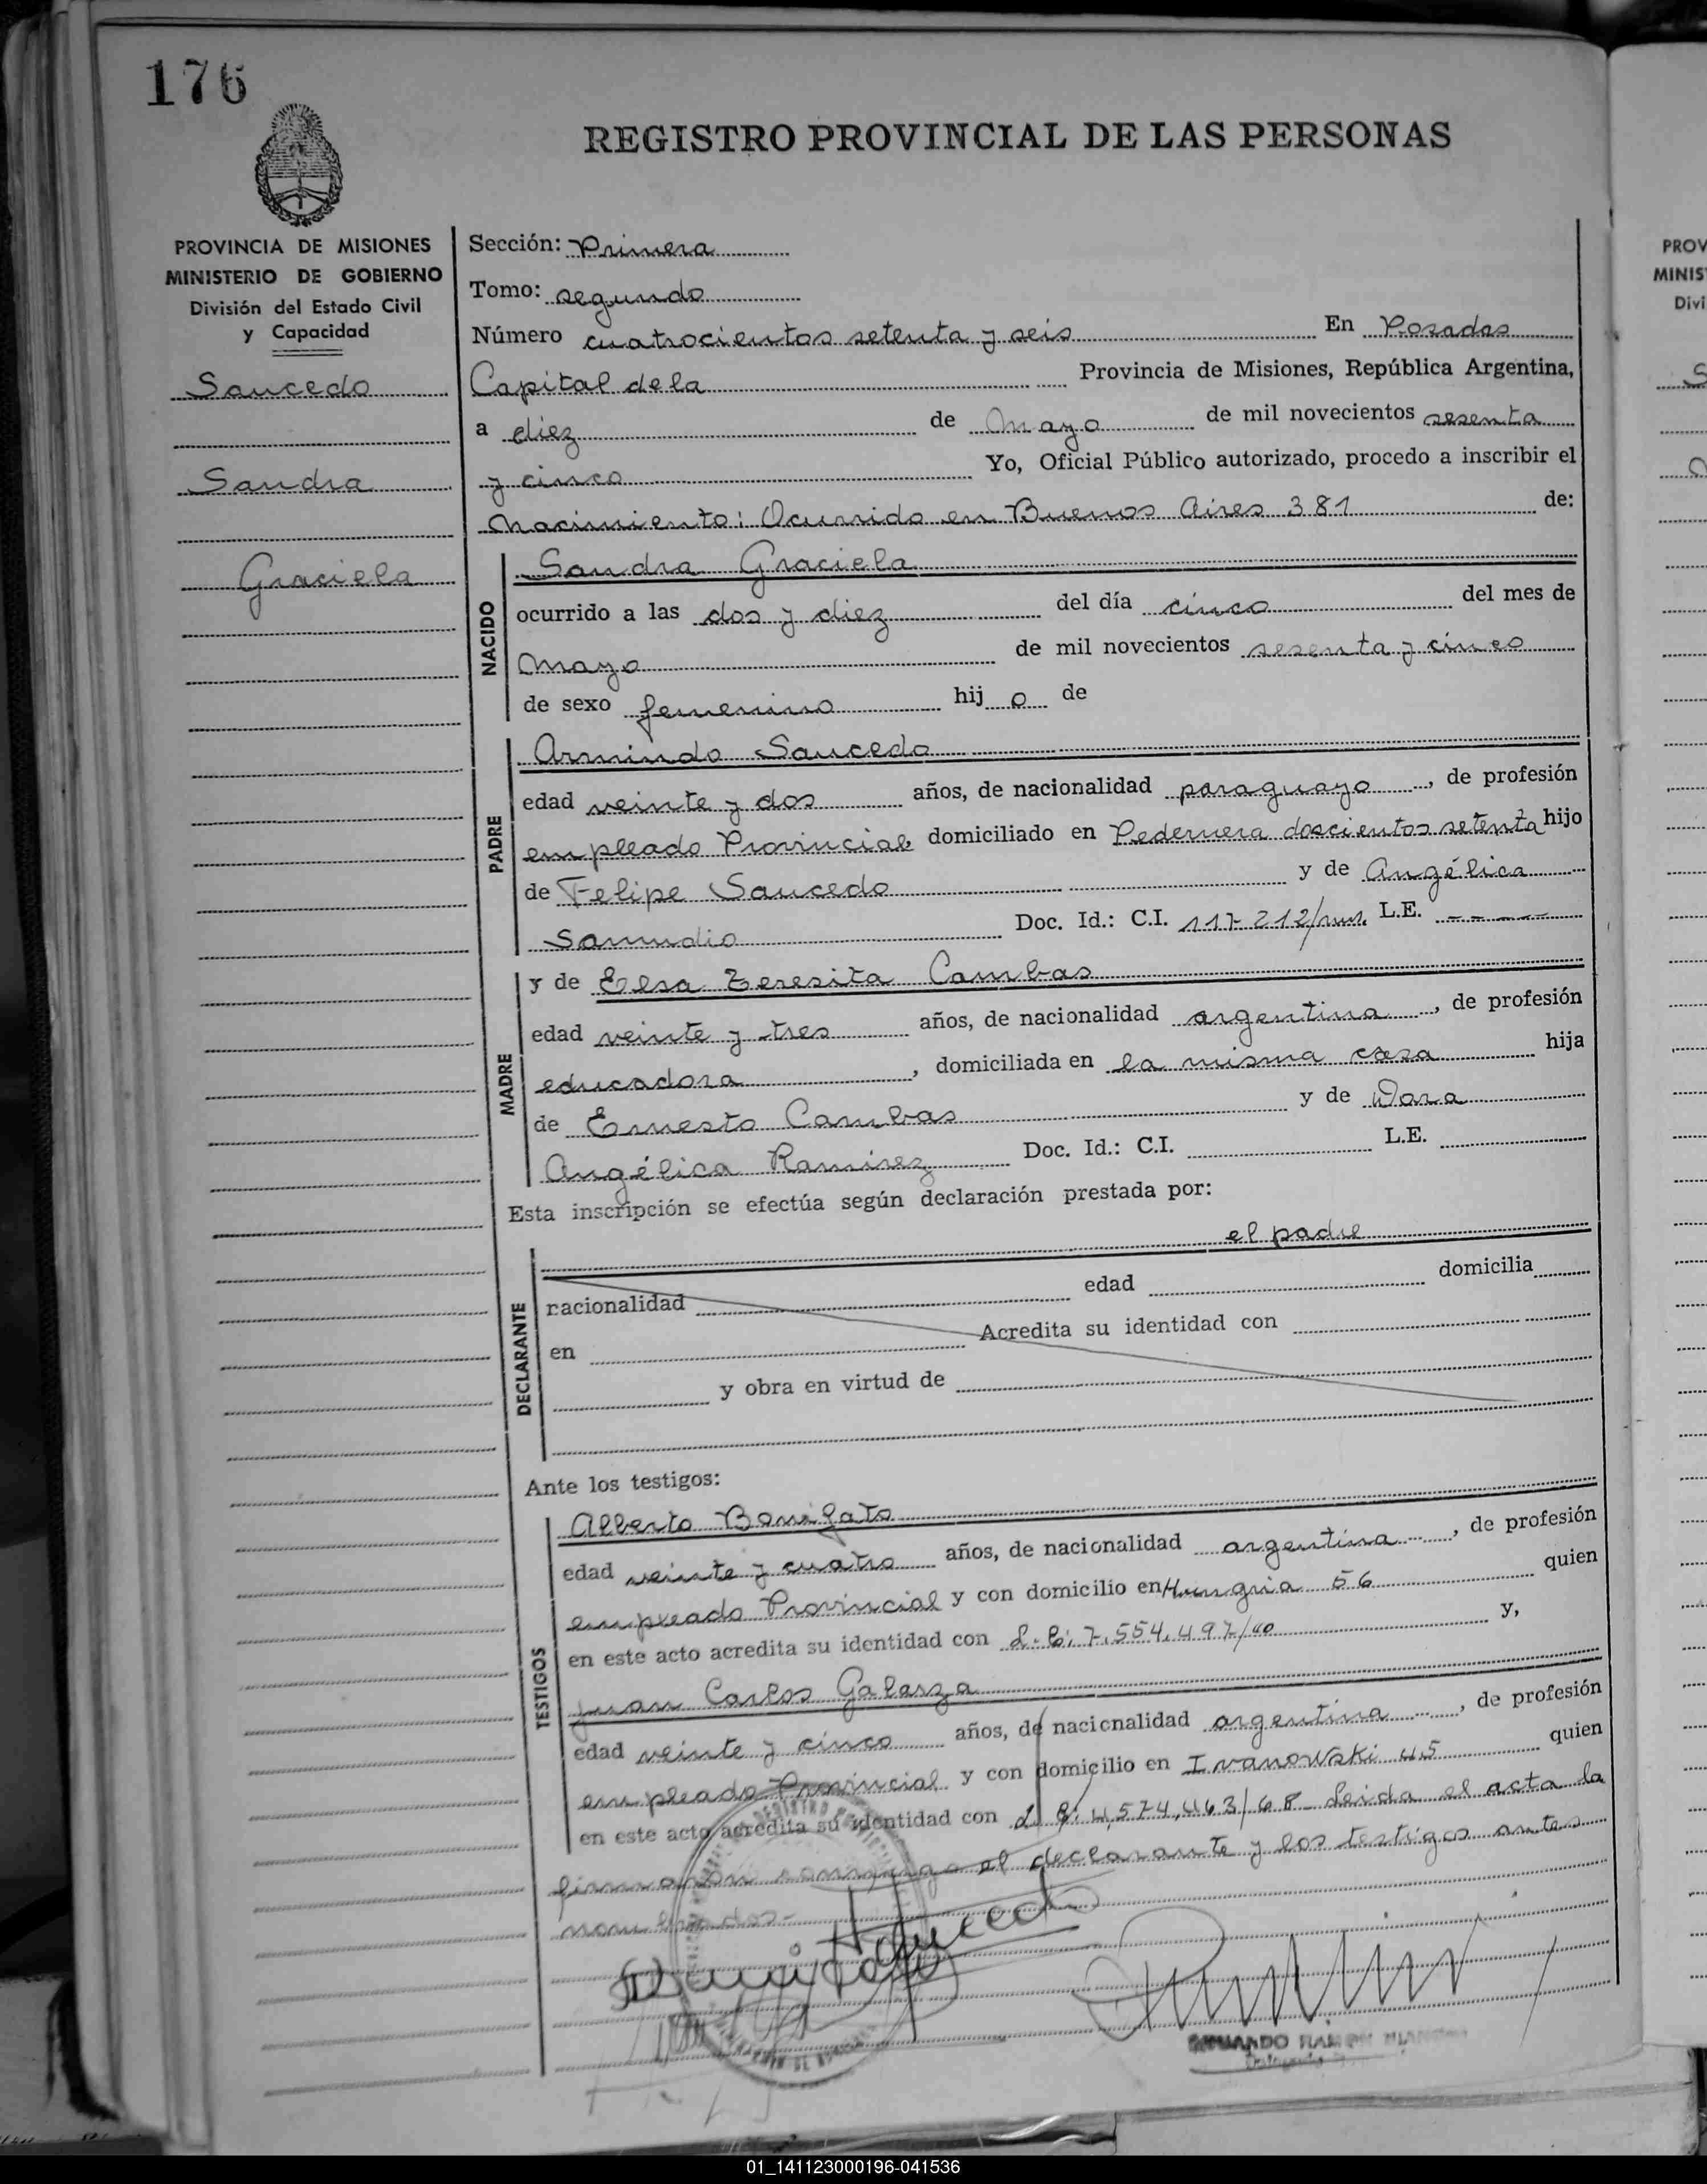 176
REGISTRO PROVINCIAL DE LAS PERSONAS
PROVINCIA DE MISIONES
MINISTERIO DE GOBIERNO
División del Estado Civil
y Capacidad
Saucedo
Sandra
Graciela
Sección: Primera
Tomo: segundo
Número cuatrocientos setenta y seis En Posadas
Capital de la Provincia de Misiones, República Argentina,
a diez de Mayo de mil novecientos sesenta
y cinco Yo, Oficial Público autorizado, procedo a inscribir el
Nacimiento: Ocurrido en Buenos Aires 381 de:
NACIDO
Sandra Graciela
ocurrido a las dos y diez del día cinco del mes de
Mayo de mil novecientos sesenta y cinco
de sexo femenino hij o de
PADRE
Armindo Saucedo
edad veinte y dos años, de nacionalidad paraguayo, de profesión
empleado Provincial, domiciliado en Pedernera doscientos setenta hijo
de Felipe Saucedo y de Angélica
Samudio Doc. Id.: C.I. 117-212/ L.E. -----
MADRE
y de Elsa Teresita Cambas
edad veinte y tres años, de nacionalidad argentina, de profesión
educadora, domiciliada en la misma casa hija
de Ernesto Cambas y de Dora
Angélica Ramirez Doc. Id.: C.I. L.E.
Esta inscripción se efectúa según declaración prestada por:
el padre
DECLARANTE
nacionalidad edad domicilia
en Acredita su identidad con
y obra en virtud de
Ante los testigos:
TESTIGOS
Alberto Bonifato
edad veinte y cuatro años, de nacionalidad argentina, de profesión
empleado Provincial y con domicilio en Hungria 56 quien
en este acto acredita su identidad con L.E: 7.554.497/40 y,
Juan Carlos Galarza
edad veinte y cinco años, de nacionalidad argentina, de profesión
empleado Provincial y con domicilio en Ivanowski 45 quien
en este acto acredita su identidad con L E: 4,574,463/68 Leida el acta la
firmaron conmigo el declarante y los testigos antes
nombrados-
RAMON
PROV
MINIS
Divi
01_141123000196-041536